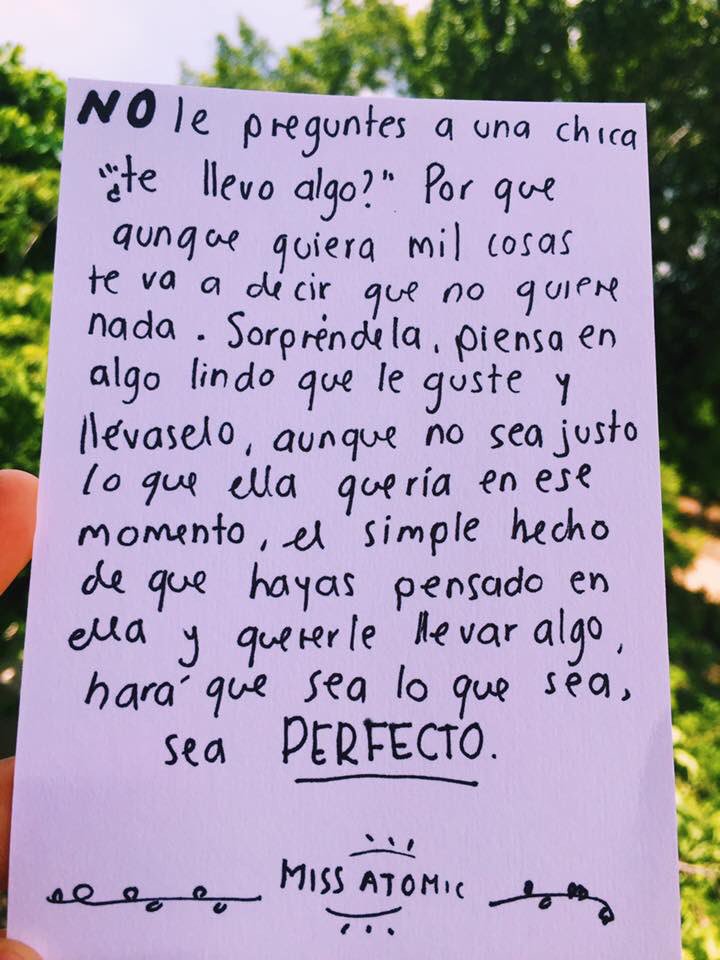 NO le preguntes a una chica
"¿te llevo algo?" Por que
aunque quiera mil cosas
te va a decir que no quiere
nada. Sorpréndela, piensa en
algo lindo que le guste y
llévaselo, aunque no sea justo
lo que ella quería en ese
momento, el simple hecho
de que hayas pensado en
ella y quererle llevar algo,
hará que sea lo que sea,
sea PERFECTO.
MISS ATOMIC